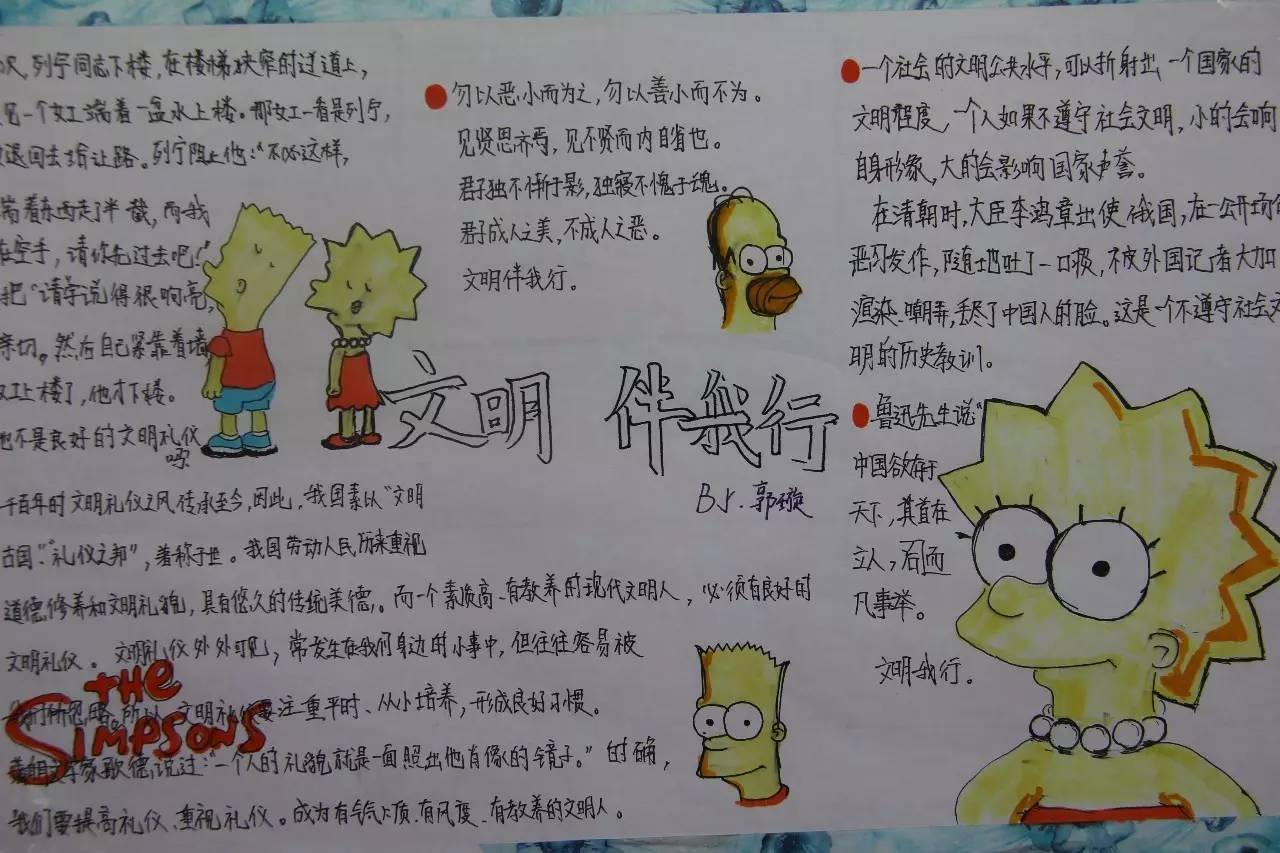 列宁同志下楼,在楼梯狭窄的过道上,
一个女工端着一盆水上楼。那女工一看是列宁,
退回去给让路。列宁阻止他:“不必这样,
端着东西走了半截,而我
空手,请你先过去吧!”
把“请”字说得很响亮,
亲切。然后自己紧靠着墙
上楼了,他才下楼。
不是良好的文明礼仪
吗?
千百年时文明礼仪之风传承至今,因此,我国素以“文明
古国”“礼仪之邦”,著称于世。我国劳动人民历来重视
道德修养和文明礼貌,具有悠久的传统美德。而一个素质高、有教养的现代文明人,必须有良好的
文明礼仪。文明礼仪外外可见,常发生在我们身边的小事中,但往往容易被
我们所忽略。所以,文明礼仪要注重平时、从小培养,形成良好习惯。
THE
SIMPSONS
家歌德说过:“一个人的礼貌就是一面照出他肖像的镜子。”的确,
我们要提高礼仪、重视礼仪。成为有气质、有风度、有教养的文明人。
勿以恶小而为之,勿以善小而不为。
见贤思齐焉,见不贤而内自省也。
君子独不惭于影,独寝不愧于魂。
君子成人之美,不成人之恶。
文明伴我行。
文明 伴我行
By.郭璇
一个社会的文明公共水平,可以折射出一个国家的
文明程度,一个人如果不遵守社会文明,小的会响
自身形象,大的会影响国家声誉。
在清朝时,大臣李鸿章出使俄国,在一公开场
恶习发作,随地吐了一口痰,被外国记者大加
渲染、嘲弄,丢尽了中国人的脸。这是一个不遵守社会文
明的历史教训。
鲁迅先生说“
中国欲存于
天下,其首在
立人,召而
凡事举。
文明我行。